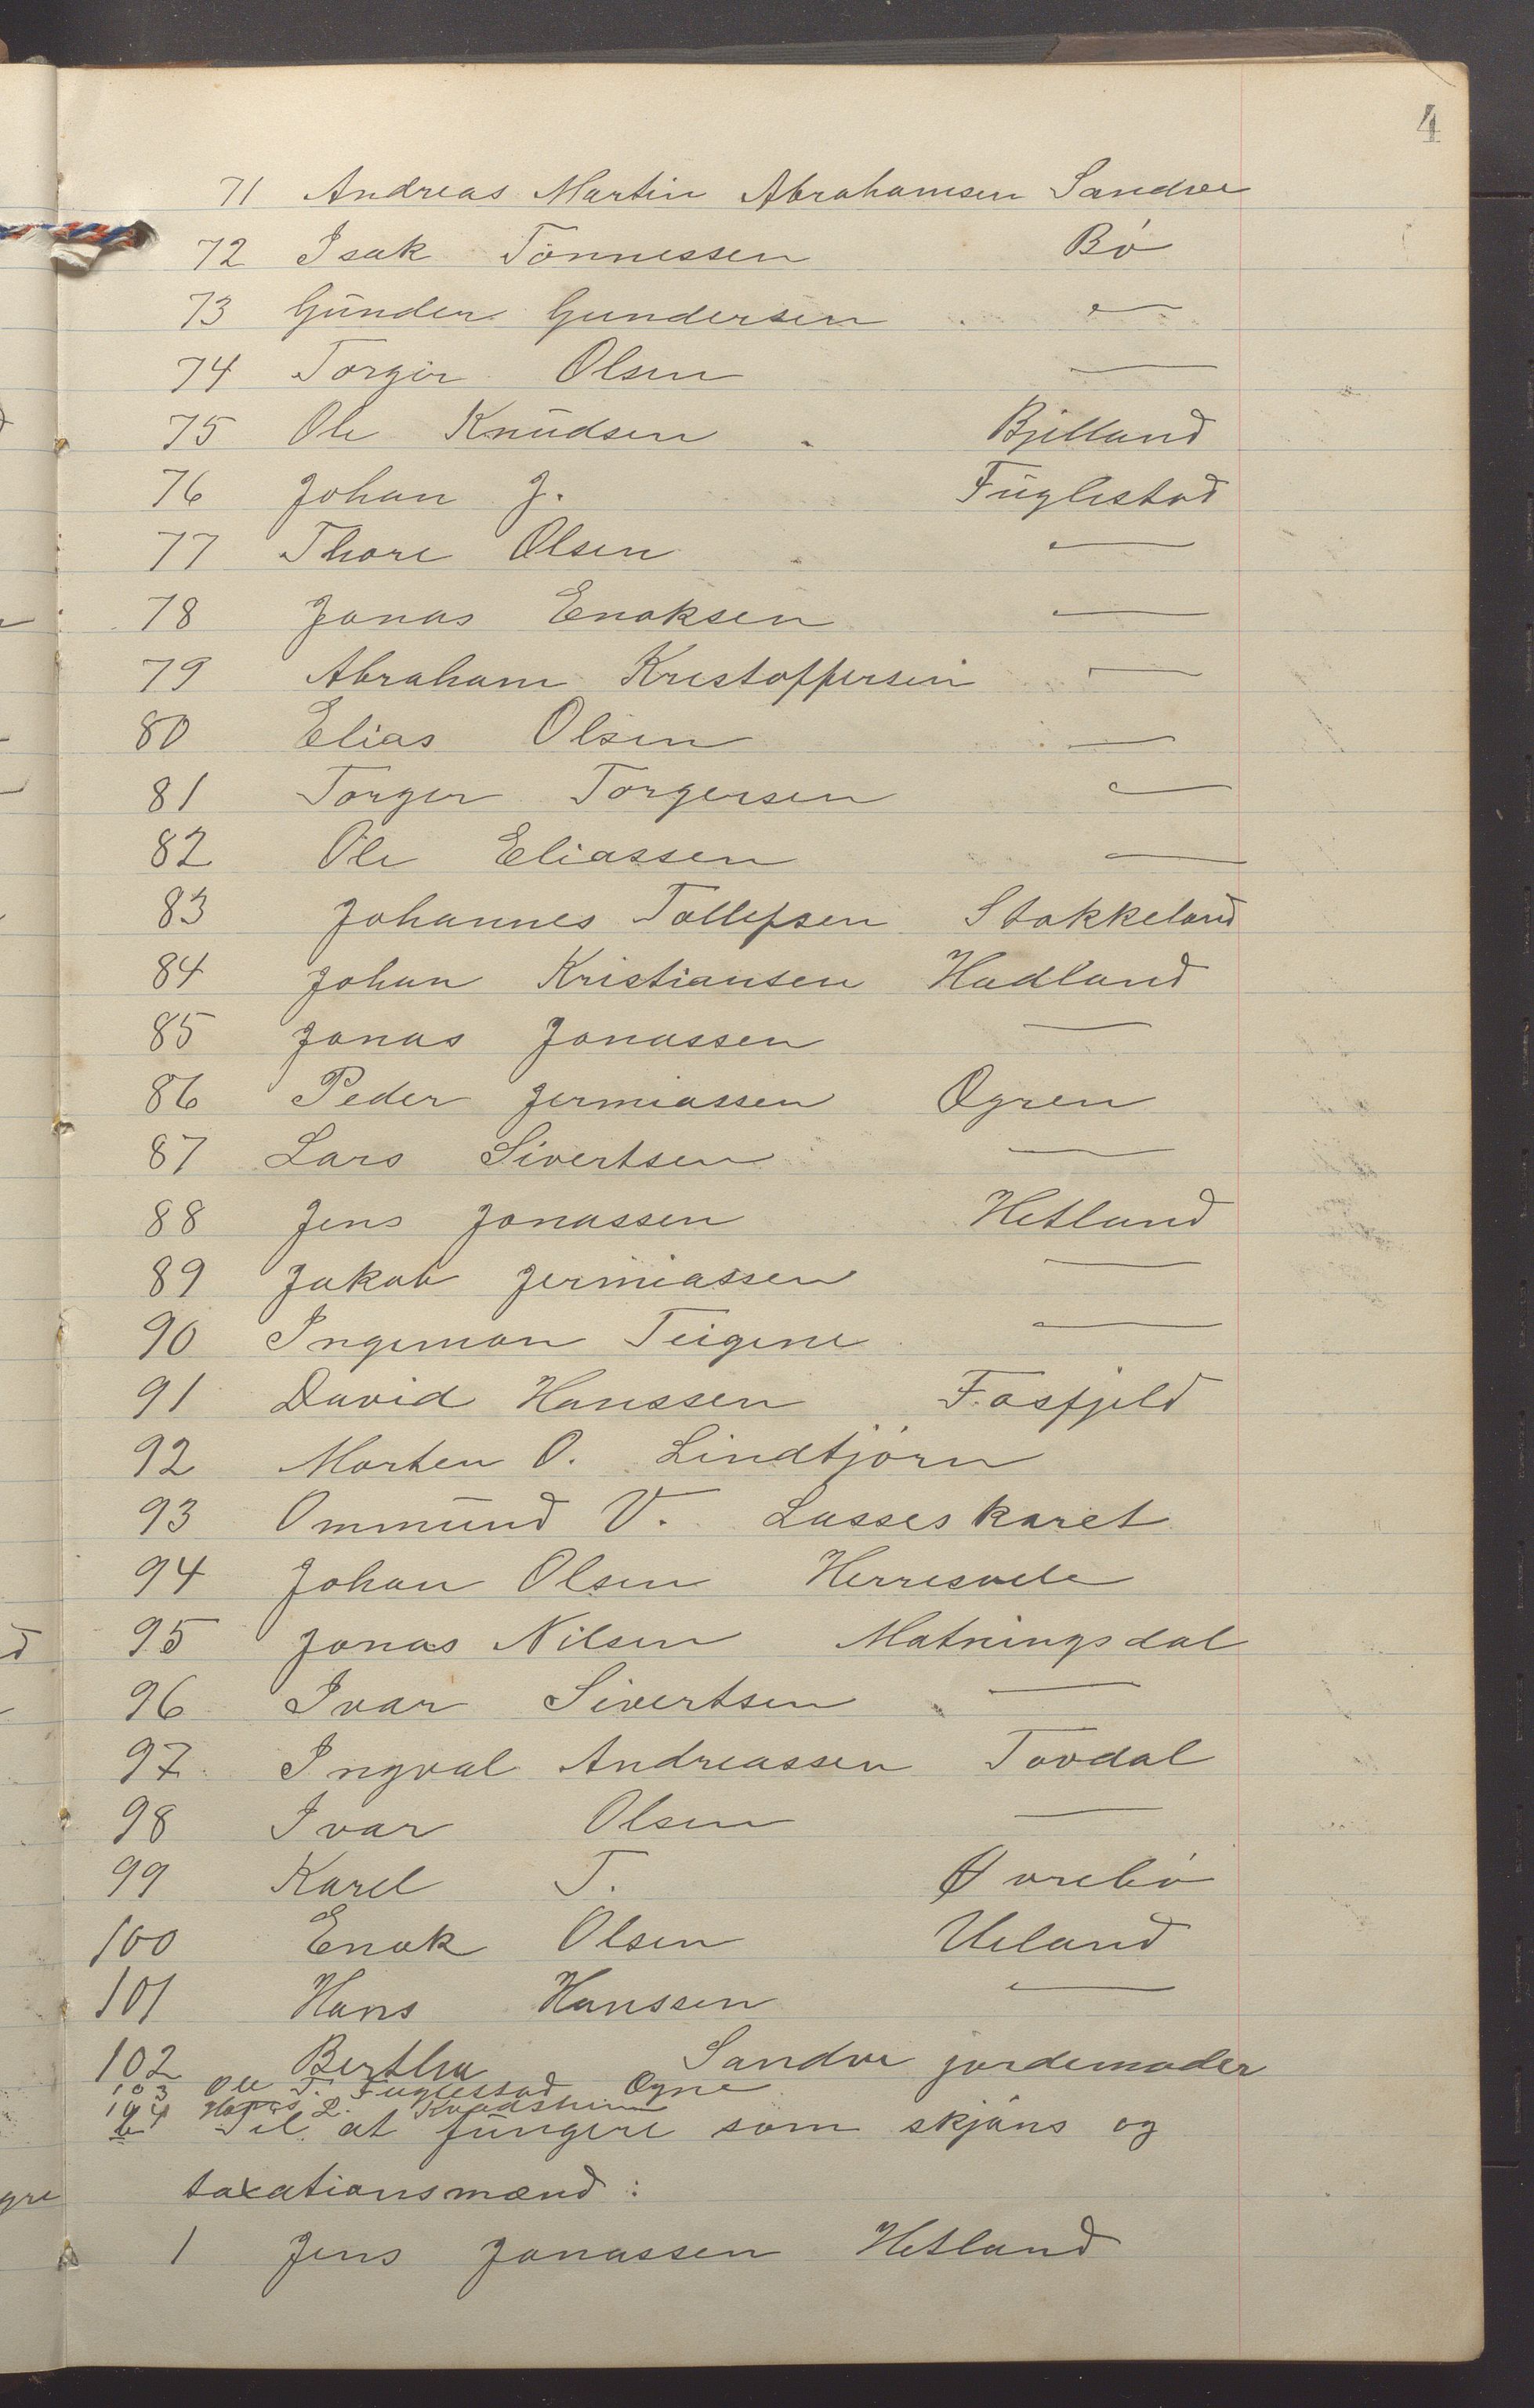 4
71 Andreas Martin Abrahamsen Sandve
72 Isak Tönnessen Bö
73 Gunder Gundersen —
74 Torger Olsen —
75 Ole Knudsen Bjelland
76 Johan J. Fuglestad
77 Thore Olsen —
78 Jonas Enoksen —
79 Abraham Kristoffersen —
80 Elias Olsen —
81 Torger Torgersen —
82 Ole Eliassen —
83 Johannes Tollefsen Stokkeland
84 Johan Kristiansen Hadland
85 Jonas Jonassen —
86 Peder Jermiassen Ogren
87 Lars Sivertsen —
88 Jens Jonassen Hetland
89 Jakob Jermiassen —
90 Ingeman Teigene —
91 David Hanssen Fosfjeld
92 Morten O. Lindtjörn
93 Ommund V. Lasseskaret
94 Johan Olsen Herresvele
95 Jonas Nilsen Matningsdal
96 Ivar Sivertsen —
97 Ingval Andreassen Tovdal
98 Ivar Olsen —
99 Karel T. Øvrebö
100 Enok Olsen Ueland
101 Hans Hanssen —
102 Bertha Sandve jordemoder
103 Ole T. Fuglestad Ogne
104 L.
b Til at fungere som skjöns og
taxationsmænd:
1 Jens Jonassen Hetland